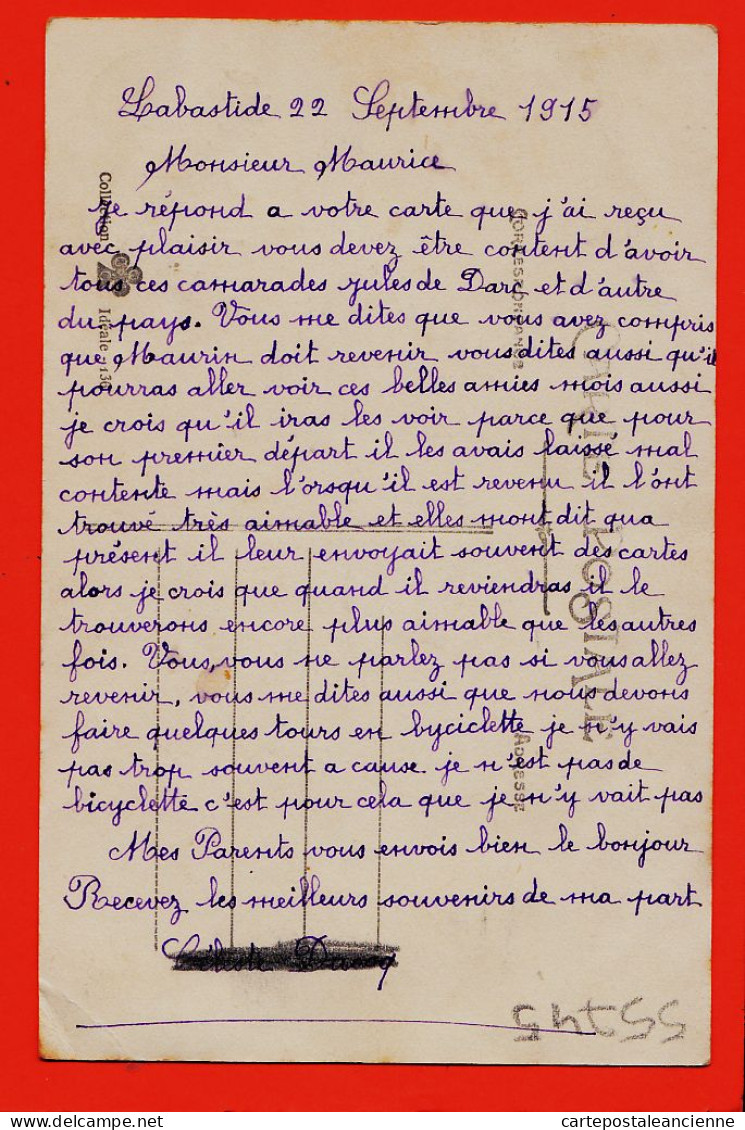 Labastide 22 Septembre 1915
Monsieur Maurice
Je répond a votre carte que j'ai reçu
avec plaisir vous devez être content d'avoir
tous ces camarades jules de Darc et d'autre
du pays. Vous me dites que vous avez compris
que Maurin doit revenir vous dites aussi qu'il
pourras aller voir ces belles amies mois aussi
je crois qu'il iras les voir parce que pour
son premier départ il les avais laissé mal
contente mais l'orsqu'il est revenu il l'ont
trouvé très aimable et elles mont dit qua
présent il leur envoyait souvent des cartes
alors je crois que quand il reviendras il le
trouverons encore plus aimable que les autres
fois. Vous, vous ne parlez pas si vous allez
revenir, vous me dites aussi que nous devons
faire quelques tours en byciclette je n'y vais
pas trop souvent a cause je n'est pas de
bicyclette c'est pour cela que je n'y vait pas
Mes Parents vous envois bien le bonjour
Recevez les meilleurs souvenirs de ma part
Céleste
55745
CARTE POSTALE
CORRESPONDANCE
ADRESSE
Collection Idéale
130
cartepostaleancienne